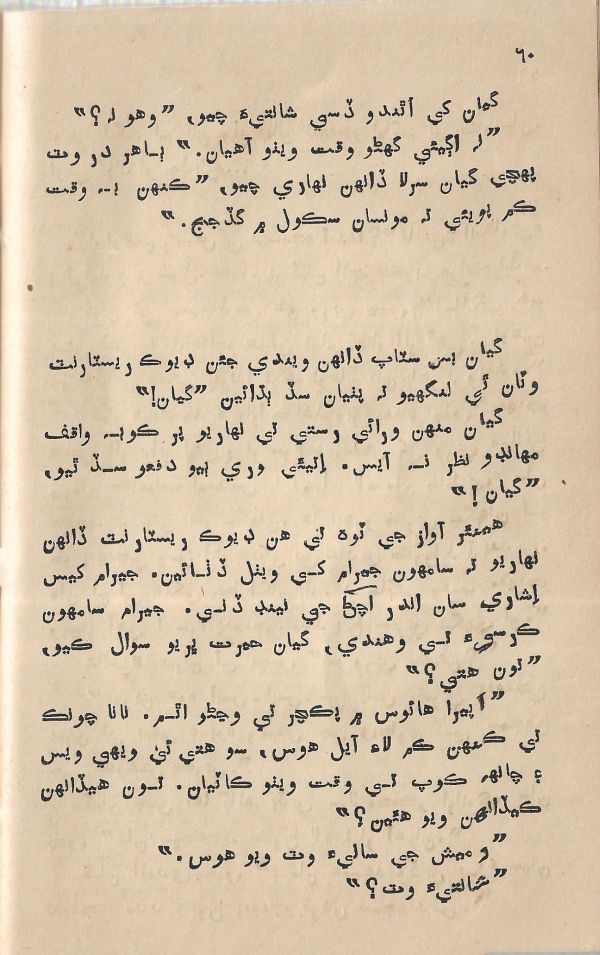 ٦٠
گيان کي اٿندو ڏسي شالتيءَ چيو، ”وھو نہ؟“
”نہ اڳيئي گھڻو وقت ويٺو آھيان.“ ٻاھر در وٽ
پھچي گيان سرلا ڏانھن نھاري چيو، ”ڪنھن بہ وقت
ڪم پويئي تہ مونسان سڪول ۾ گڏجج.“
گيان بس سٽاپ ڏانھن ويندي جئن ڊيوڪ ريسٽارنٽ
وٽان ٿي لنگھيو تہ پٺيان سڏ ٻڌائين ”گيان!“
گيان منھن ورائي رستي تي نھاريو پر ڪوبہ واقف
مھانڊو نظر نہ آيس. اِتيئي وري ٻيو دفعو سڏ ٿيو،
”گيان!“
ھيئنئر آواز جي ٽوہ تي ھن ڊيوڪ ريسٽارنٽ ڏانھن
نھاريو تہ سامھون جيرام کي ويٺل ڏٺائين. جيرام کيس
اِشاري سان اندر اچڻ جي نينڊ ڏني. جيرام سامھون
ڪرسيءَ تي وھندي، گيان حيرت ڀريو سوال ڪيو،
”تون ھتي؟“
”آپيرا ھائوس ۾ پڪچر تي وڃڻو اٿم. نانا چوڪ
تي ڪنھن ڪم لاءِ آيل ھوس، سو ھتي ئي ويھي ويس
۽ چانھہ ڪوپ تي وقت ويٺو ڪاٽيان. تون ھيڏانھن
ڪيڏانھن ويو ھئين؟“
”رميش جي ساليءَ وٽ ويو ھوس.“
”شالتيءَ وٽ؟“